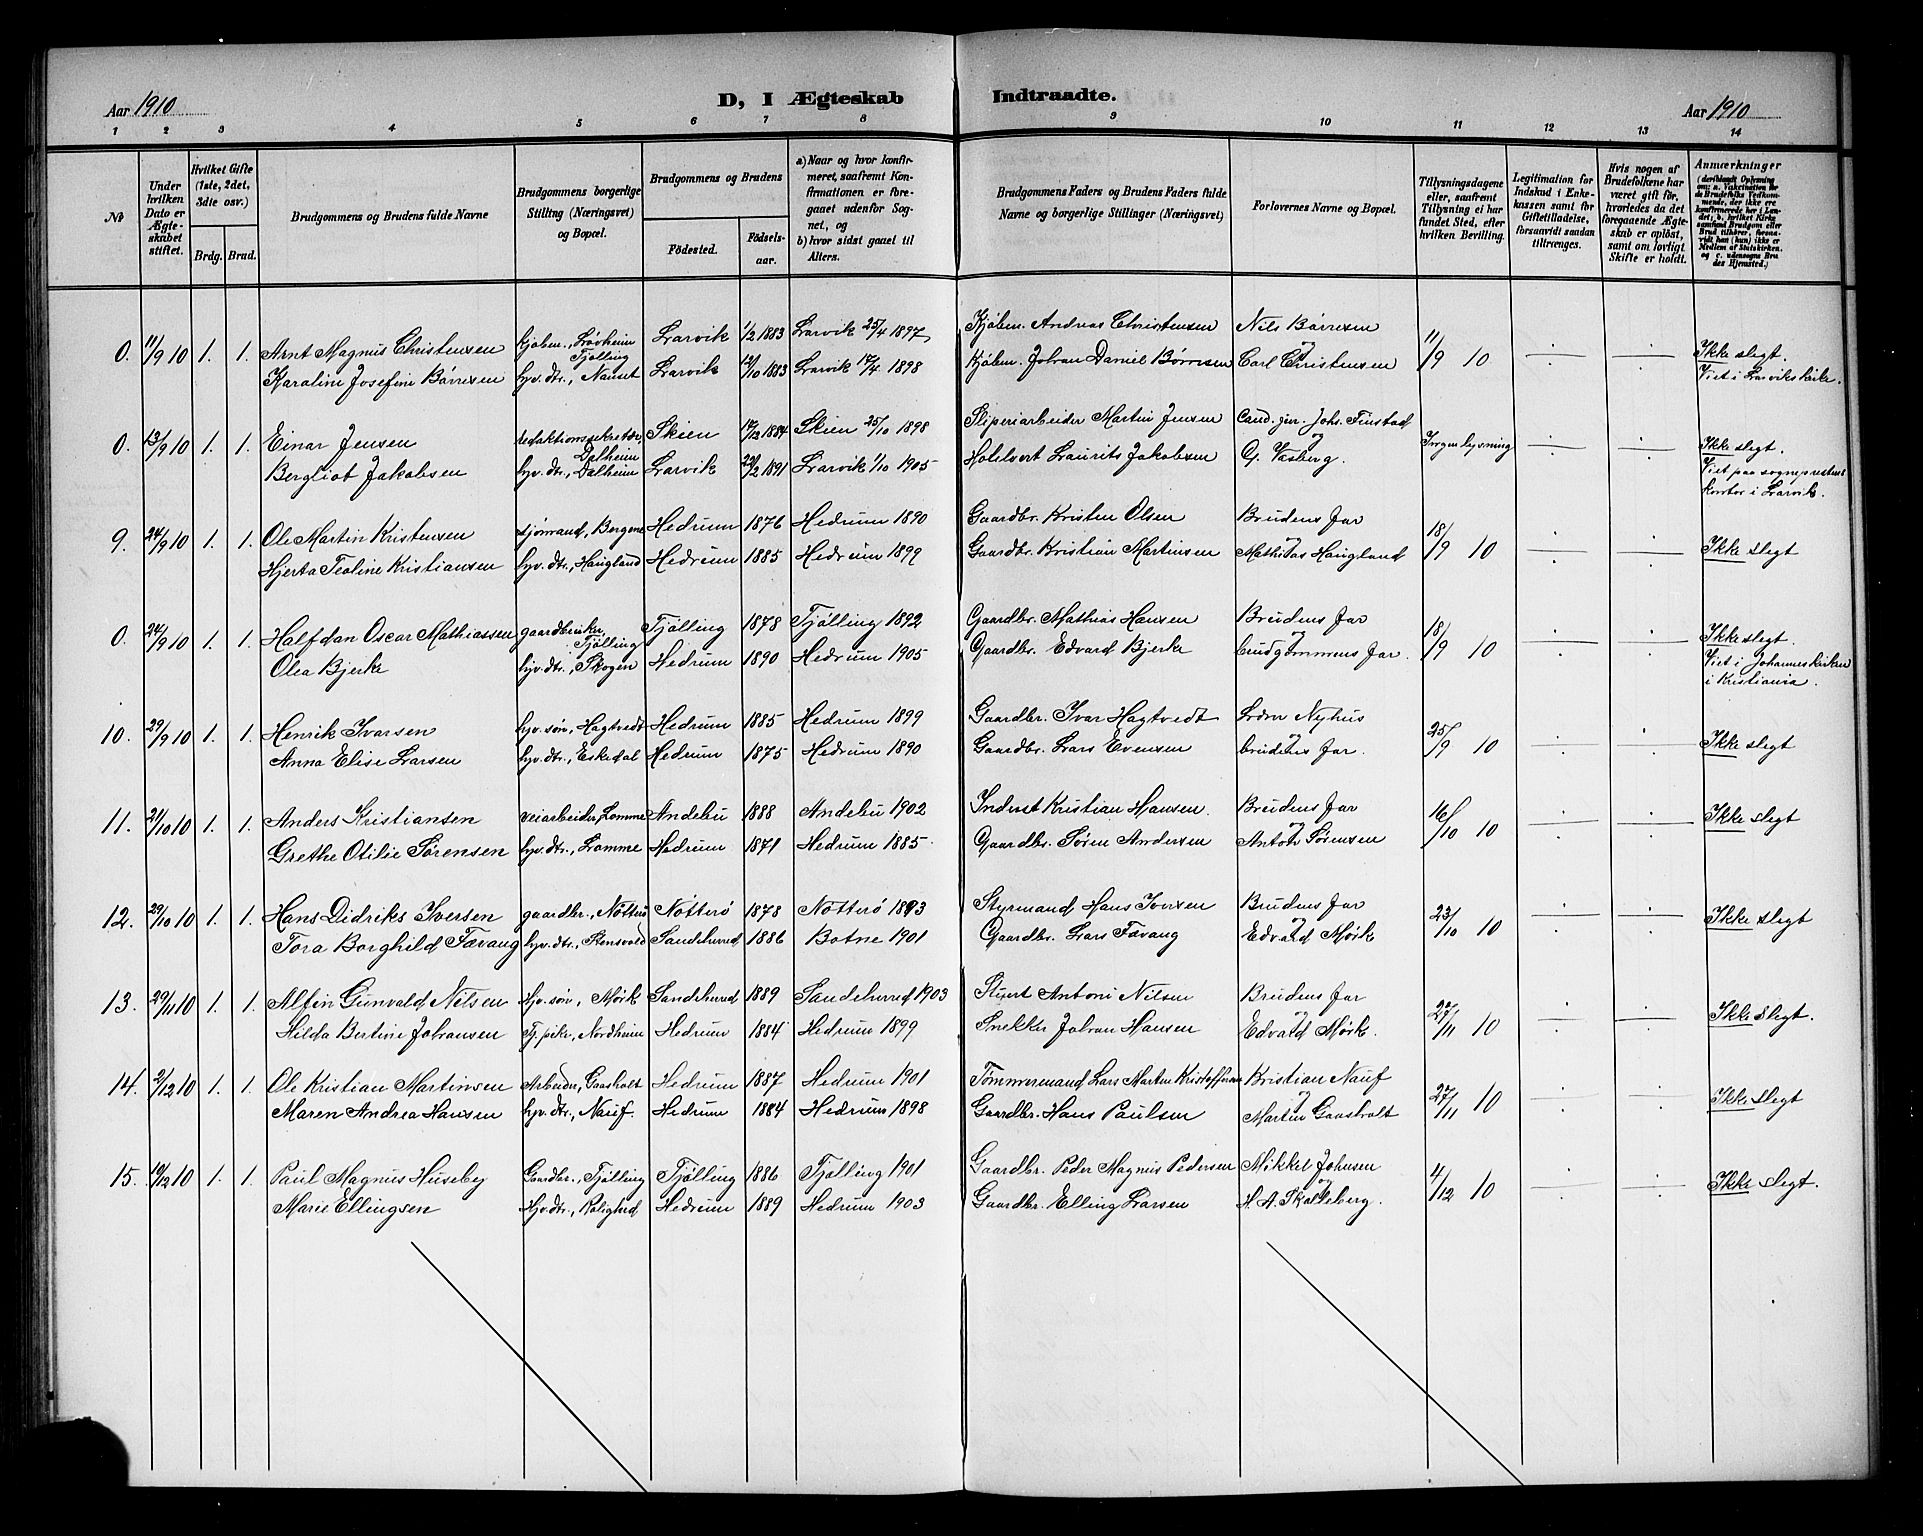 Aar 1910
D, I Ægteskab Indtraadte.
Aar 1910
1 2 3 4 5 6 7 8 9 10 11 12 13 14
No
Under hvilken Dato er Ægteskabet stiftet.
Hvilket Gifte (1ste, 2det, 3die osv.)
Brdg. Brud.
Brudgommens og Brudens fulde Navne
Brudgommens borgerlige Stilling (Næringsvei) og Bopæl.
Brudgommens og Brudens
Födested. Födselsaar.
a) Naar og hvor konfirmeret, saafremt Konfirmationen er foregaaet udenfor Sognet, og
b) hvor sidst gaaet til Alters.
Brudgommens Faders og Brudens Faders fulde Navne og borgerlige Stillinger (Næringsvei)
Forlovernes Navne og Bopæl.
Tillysningsdagene eller, saafremt Tillysning ei har fundet Sted, efter hvilken Bevilling.
Legitimation for Indskud i Enkekassen samt for Giftetilladelse, forsaavidt saadan tiltrænges.
Hvis nogen af Brudefolkene har været gift før, hvorledes da det foregaaende Ægteskab er oplöst, samt om lovligt Skifte er holdt.
Anmærkninger
0. 11/9 10 1. 1. Arnt Magnus Christensen kjøbm., Løvheim Tjølling Larvik 1/2 1883 Larvik 25/4 1897 Kjøbm. Andreas Christensen Nils Børresen 11/9 10 Ikke slegt.
Karoline Josefine Børresen hjv. dtr., Nanset Larvik 12/10 1883 Larvik 17/4 1898 Kjøbm. Johan Daniel Børresen og Carl Christensen Viet i Larviks kirke.
0. 13/9 10 1. 1. Einar Jensen redaktionssekretær Dalheim Skien 17/12 1884 Skien 25/10 1898 Sliperiarbeider Martin Jensen Cand. jur. Johs. Finstad Ingen lysning Ikke slegt.
Bergliot Jakobsen hjv. dtr., Dalheim Larvik 22/2 1891 Larvik 1/10 1905 Holtvert Laurits Jakobsen og G. Vasberg. Viet paa sogneprestens
kontor i Larvik.
9. 24/9 10 1. 1. Ole Martin Kristensen sjømand, Bergene Hedrum 1876 Hedrum 1890 Gaardbr. Kristen Olsen Brudens far 18/9 10 Ikke slegt
Hjerta Tealine Kristiansen hjv. dtr., Haugland Hedrum 1885 Hedrum 1899 Gaardbr. Kristian Martinsen og Mathias Haugland
0. 24/9 10 1. 1. Halfdan Oscar Mathiassen gaardbruker, Tjølling Tjølling 1878 Tjølling 1892 Gaardbr. Mathias Hansen Brudens far 18/9 10 Ikke slegt.
Olea Bjerke hjv. dtr., Skogen Hedrum 1890 Hedrum 1905 Gaardbr. Edvard Bjerke og brudgommens far. Viet i Johanneskirken
i Kristiania.
10. 29/9 10 1. 1. Henrik Ivarsen hjv. søn, Hagtvedt Hedrum 1885 Hedrum 1899 Gaardbr. Ivar Hagtvedt Nyhus 25/9 10 Ikke slegt
Anna Elise Larsen hjv. dtr., Eskedal Hedrum 1875 Hedrum 1890 Gaardbr. Lars Evensen og brudens far.
11. 21/10 10 1. 1. Anders Kristiansen veiarbeider, Lomme Andebu 1888 Andebu 1902 Inderst Kristian Hansen. Brudens far 16/10 10 Ikke slegt
Grethe Otilie Sørensen hjv. dtr., Lomme Hedrum 1871 Hedrum 1885. Gaardbr. Søren Andersen og Anton Sørensen
12. 29/10 10 1. 1. Hans Didriks Iversen gaardbr., Nøtterø Nøtterø 1878 Nøtterø 1893 Styrmand Hans Iversen Brudens far 23/10 10 Ikke slegt
Tora Borghild Favang hjv. dtr., Stensvold Sandeherred 1886 Botne 1901 Gaardbr. Lars Favang og Edvard Mørk
13. 29/11 10 1. 1. Alfin Gunvald Nilsen Hjv. søn, Mørk Sandeherred 1889 Sandeherred 1903 Stuert Antoni Nilsen Brudens far 27/11 10 Ikke slegt.
Hilda Bertine Johansen Tj. pike, Nordheim Hedrum 1884 Hedrum 1899 Snekker Johan Hansen og Edvard Mørk.
14. 2/12 10 1. 1. Ole Kristian Martinsen Arbeider, Gaasholt Hedrum 1887 Hedrum 1901 Tømmermand Lars Martin Kristoffersen Kristian Nauf 27/11 10 Ikke slegt
Maren Andrea Hansen hjv. dtr., Nauf. Hedrum 1884 Hedrum 1898 Gaardbr. Hans Paulsen og Martin Gaasholt
15. 19/12 10 1. 1. Paul Magnus Huseby Gaardbr., Tjølling Tjølling 1886 Tjølling 1901 Gaardbr. Peder Magnus Pedersen Mikkel Johnsen 4/12 10 Ikke slegt.
Marie Ellingsen Hjv. dtr., Rolighed Hedrum 1889 Hedrum 1903 Gaardbr. Elling Larsen og H. A. Skalleberg.